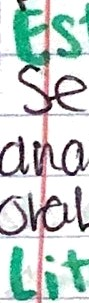 Est
se
ana
oral
Lit